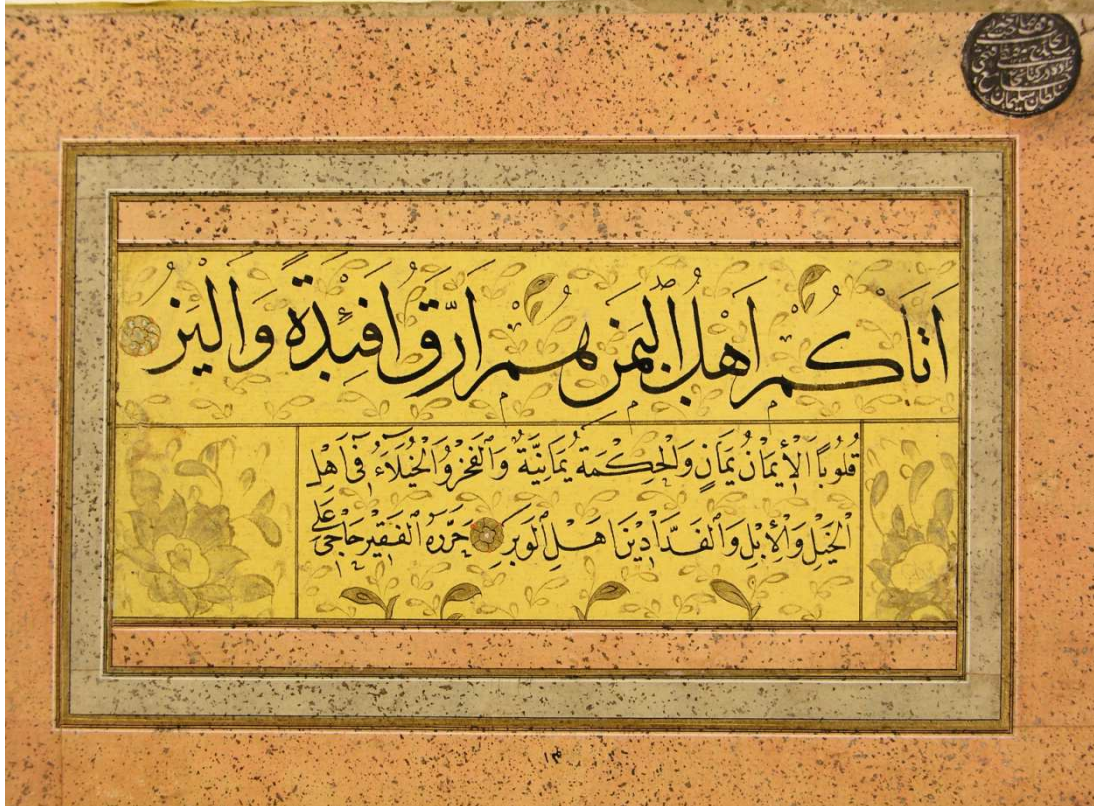 اَتَاكُمْ اَهْلُ الْيَمَنِ هُمْ اَرَقُّ اَفْئِدَةً وَاَلْيَنُ
قُلُوبًا اَلْأِيمَانُ يَمَانٍ وَالْحِكْمَةُ يَمَانِيَّةٌ وَالْفَخْرُ وَالْخُيَلَاۤءُ فِي اَهْلِ
الْخَيْلِ وَالْأِبِلِ وَالْفَدَّادِينَ اَهْلِ الْوَبَرِ حَرَّرَهُ الْفَقِيرُ حَاجِي عَلِي